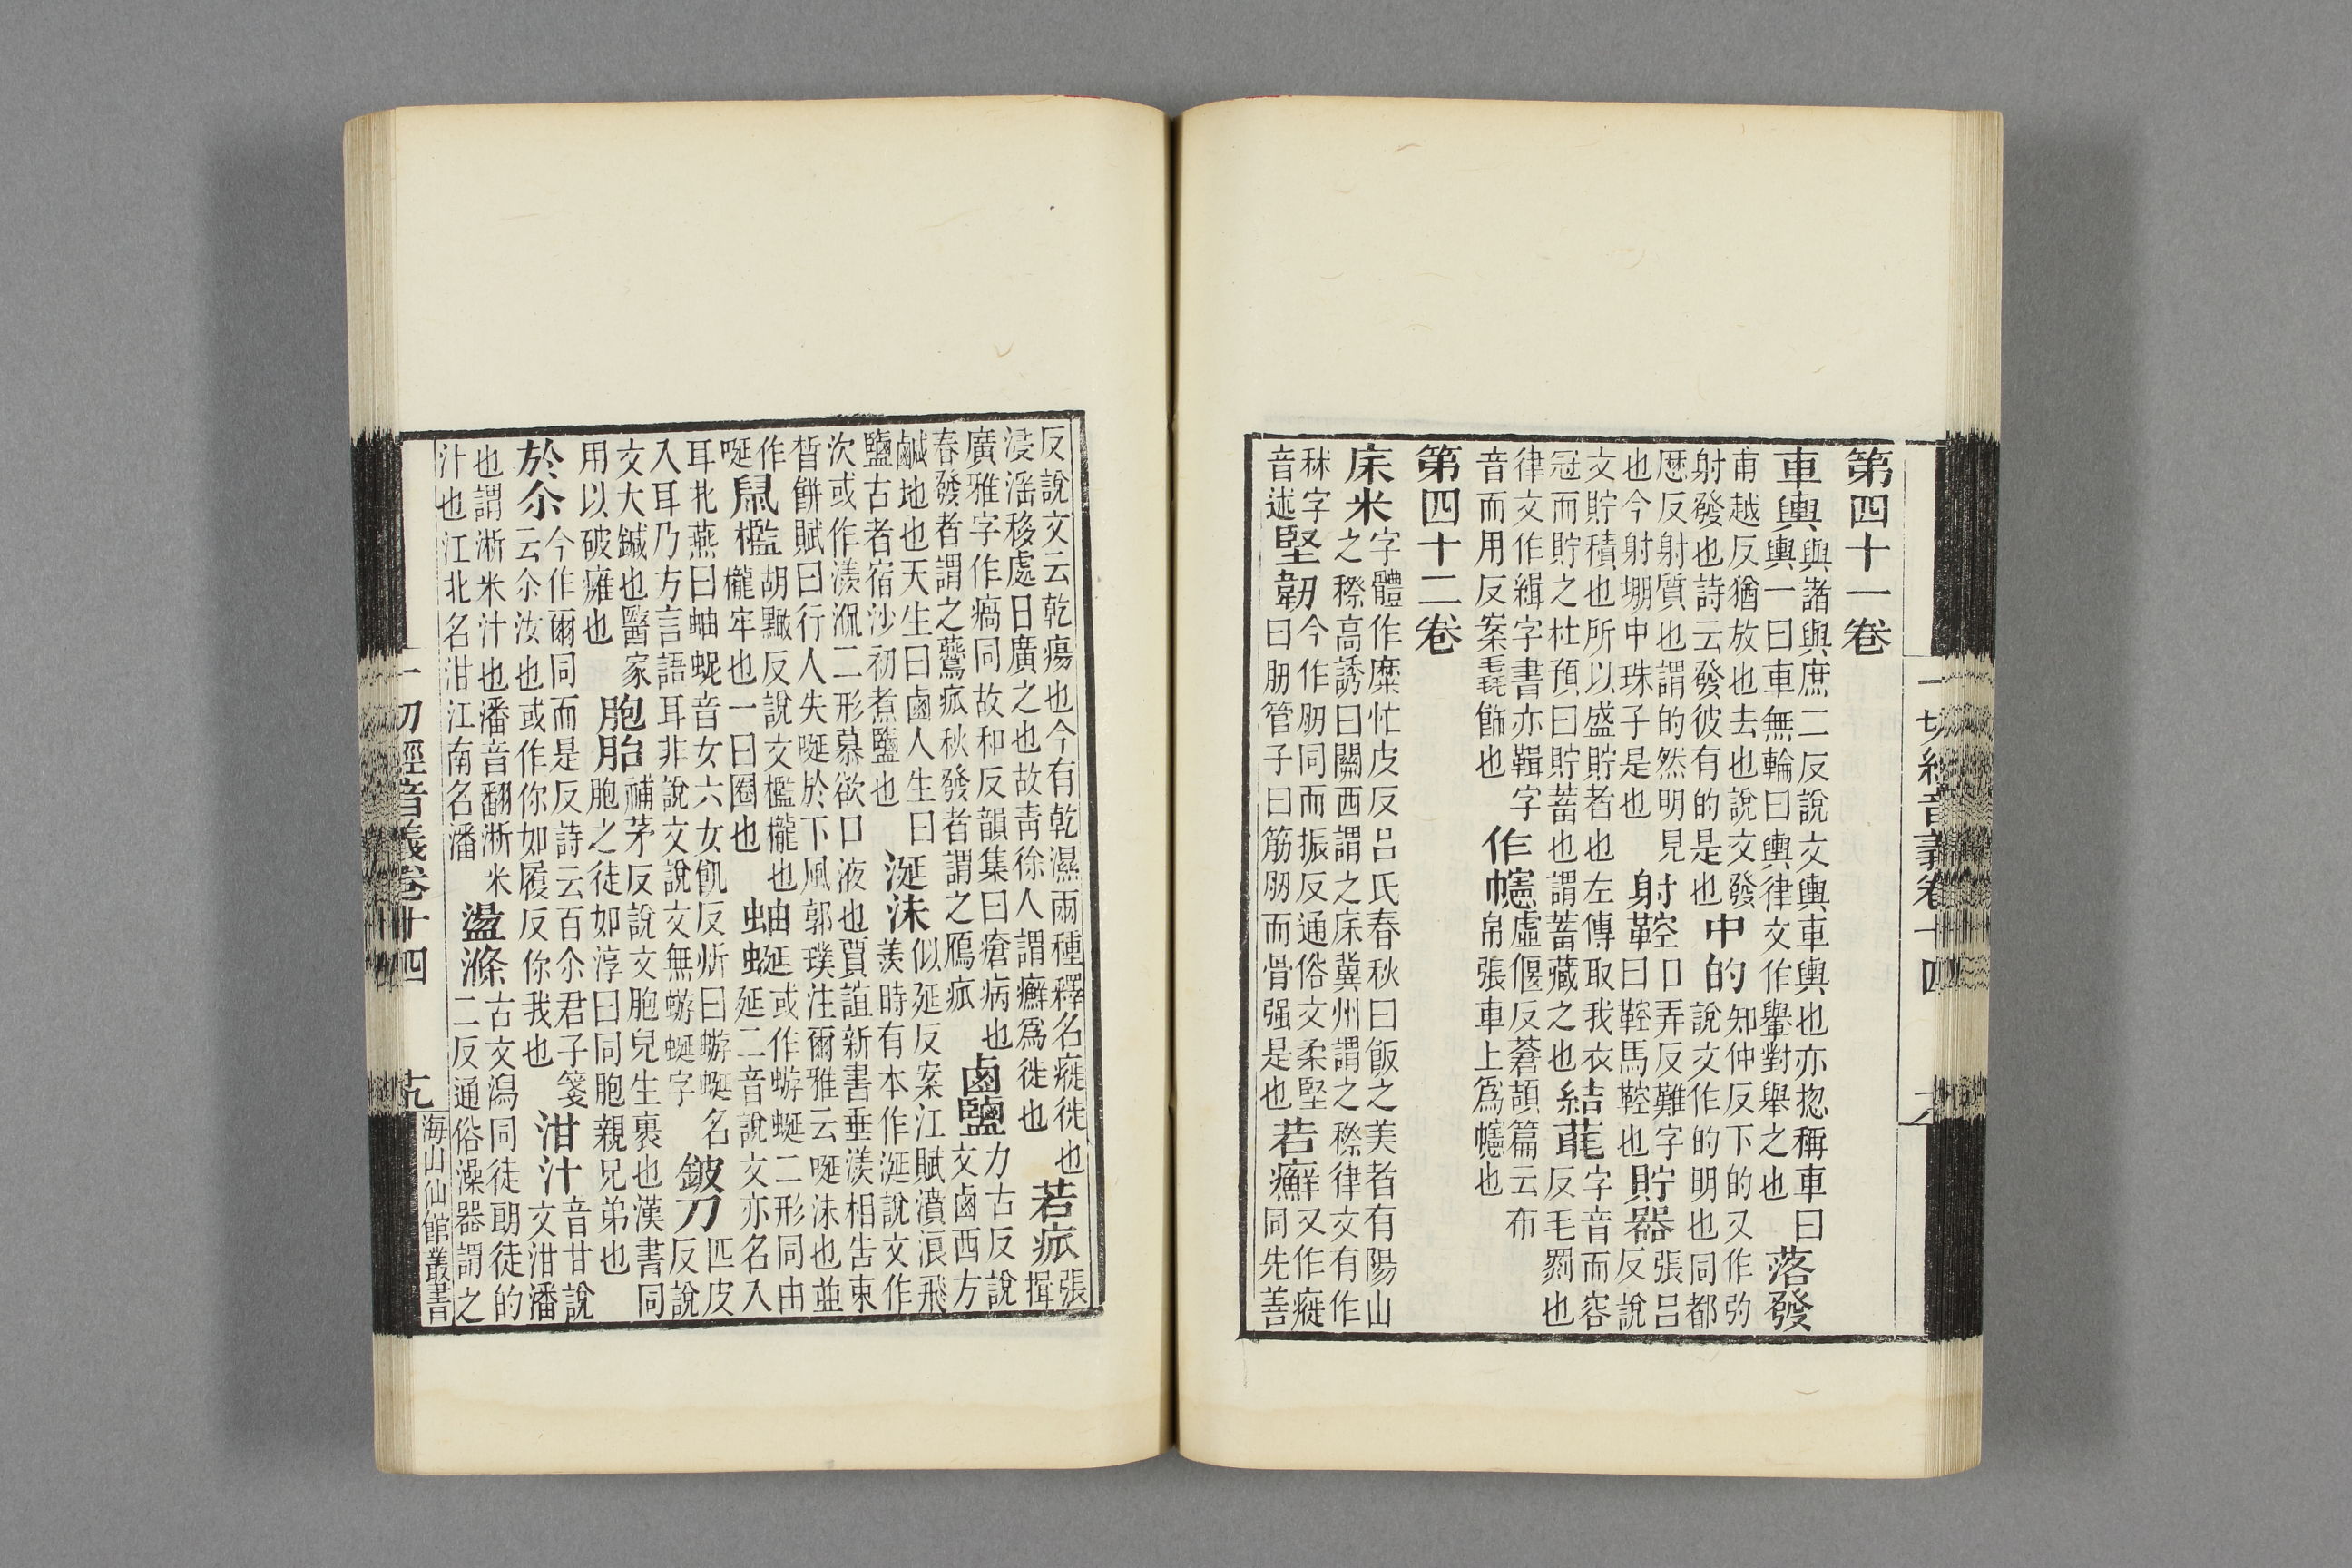 一切經音義卷十四
第四十一卷
車輿與諸與庶二反說文輿車輿也亦揔稱車曰輿一曰車無輪曰輿律文作轝對舉之也落發
甫越反猶放也去也說文發射發也詩云發彼有的是也中的知仲反下的又作旳說文作的明也同都
厯反射質也謂的然明見也今射堋中珠子是也射鞚口弄反難字曰鞚馬鞚也貯器張吕反說
文貯積也所以盛貯者也左傳取我衣冠而貯之杜預曰貯蓄也謂蓄藏之也結毦字音而容反毛罽也
律文作緝字書亦鞙字音而用反案毦飾也作幰虛偃反蒼頡篇云布帛張車上爲幰也
第四十二卷
床米字體作糜忙皮反吕氏春秋曰飯之美者有陽山之穄高誘曰關西謂之床冀州謂之穄律文有作
秫字音述堅韌今作肕同而振反通俗文柔堅曰肕管子曰筋肕而骨强是也若癬又作㿇同先善
反說文云乾瘍也今有乾濕兩種釋名㿇徙也浸淫移處日廣之也故靑徐人謂癬爲徙也若㽿張揖
廣雅字作瘑同故和反韻集曰瘡病也春發者謂之鷰㽿秋發者謂之鴈㽿鹵鹽力古反說文鹵西方
鹹地也天生曰鹵人生曰鹽古者宿沙初煮鹽也涎沫似延反案江賦濆浪飛羨時有本作涎說文作
次或作漾㳄二形慕欲口液也賈誼新書垂漾相告束皙餅賦曰行人失唌於下風郭璞注爾雅云唌沫也並
作唌鼠檻胡黤反說文檻櫳也櫳牢也一曰圈也蚰蜒或作蝣蜒二形同由延二音說文亦名入
耳北燕曰蚰蜺音女六女飢反炘曰蝣蜒名入耳乃方言語耳非說文說文無蝣蜒字鈹刀匹皮反說
文大鍼也醫家用以破癰也胞胎補茅反說文胞兒生裹也漢書同胞之徒如淳曰同胞親兄弟也
於尒今作爾同而是反詩云百尒君子箋云尒汝也或作你如履反你我也泔汁音甘說文泔潘
也謂淅米汁也潘音翻淅米汁也江北名泔江南名潘盪滌古文潒同徒朗徒的二反通俗澡器謂之
一切經音義卷十四
海山仙館叢書